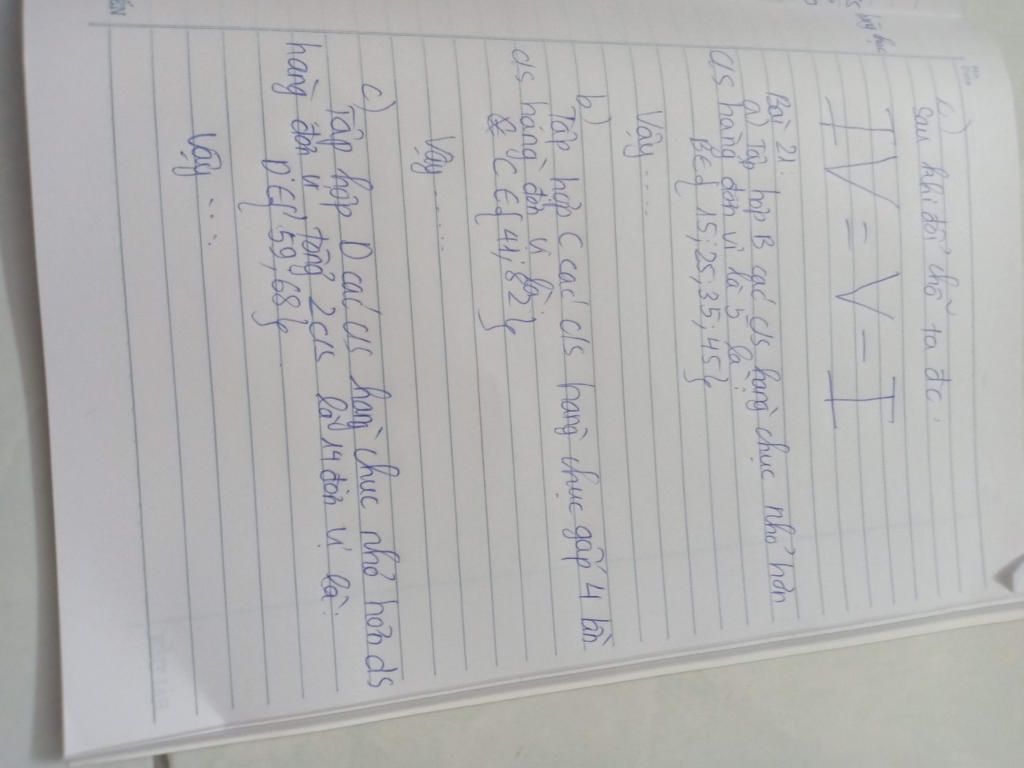 c)
sau khi đổi chỗ ta đc:
IV = V - I
Bài 21:
a) Tập hợp B các c/s hàng chục nhỏ hơn
c/s hàng đơn vị là 5 là:
B∈{15;25;35;45}
Vậy....
b)
Tập hợp C các c/s hàng chục gấp 4 lần
c/s hàng đơn vị là:
C∈{41;82}
Vậy......
c)
Tập hợp D các c/s hàng chục nhỏ hơn c/s
hàng đơn vị tổng 2 c/s là 14 đơn vị là:
D∈{59;68}
Vậy....